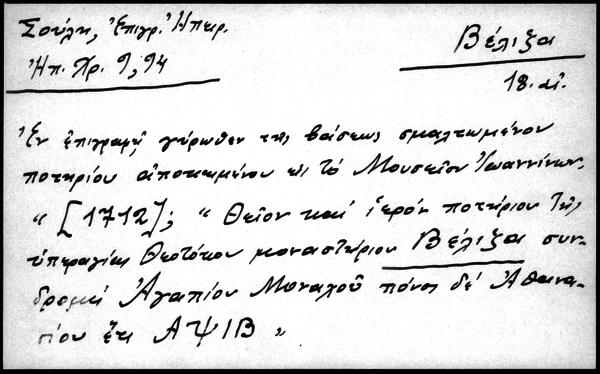 Σούλη, Ἐπιγρ. Ἠπειρ.
Ἠπ. Χρ. 9, 94
Βέλιξα
18. αἰ.
Ἐν ἐπιγραφῇ γύρωθεν τῆς βάσεως σμαλτωμένου
ποτηρίου ἀποκειμένου εἰς τὸ Μουσεῖον Ἰωαννίνων,
“ [1712]; “ Θεῖον καὶ ἱερόν ποτήριον τῆς
ὑπεραγίας Θεοτόκου μοναστηρίου Βέλιξα συν-
δρομῇ Ἀγαπίου Μοναχοῦ πόνος δέ Ἀθανα-
σίου ἔτει ΑΨΙΒ „